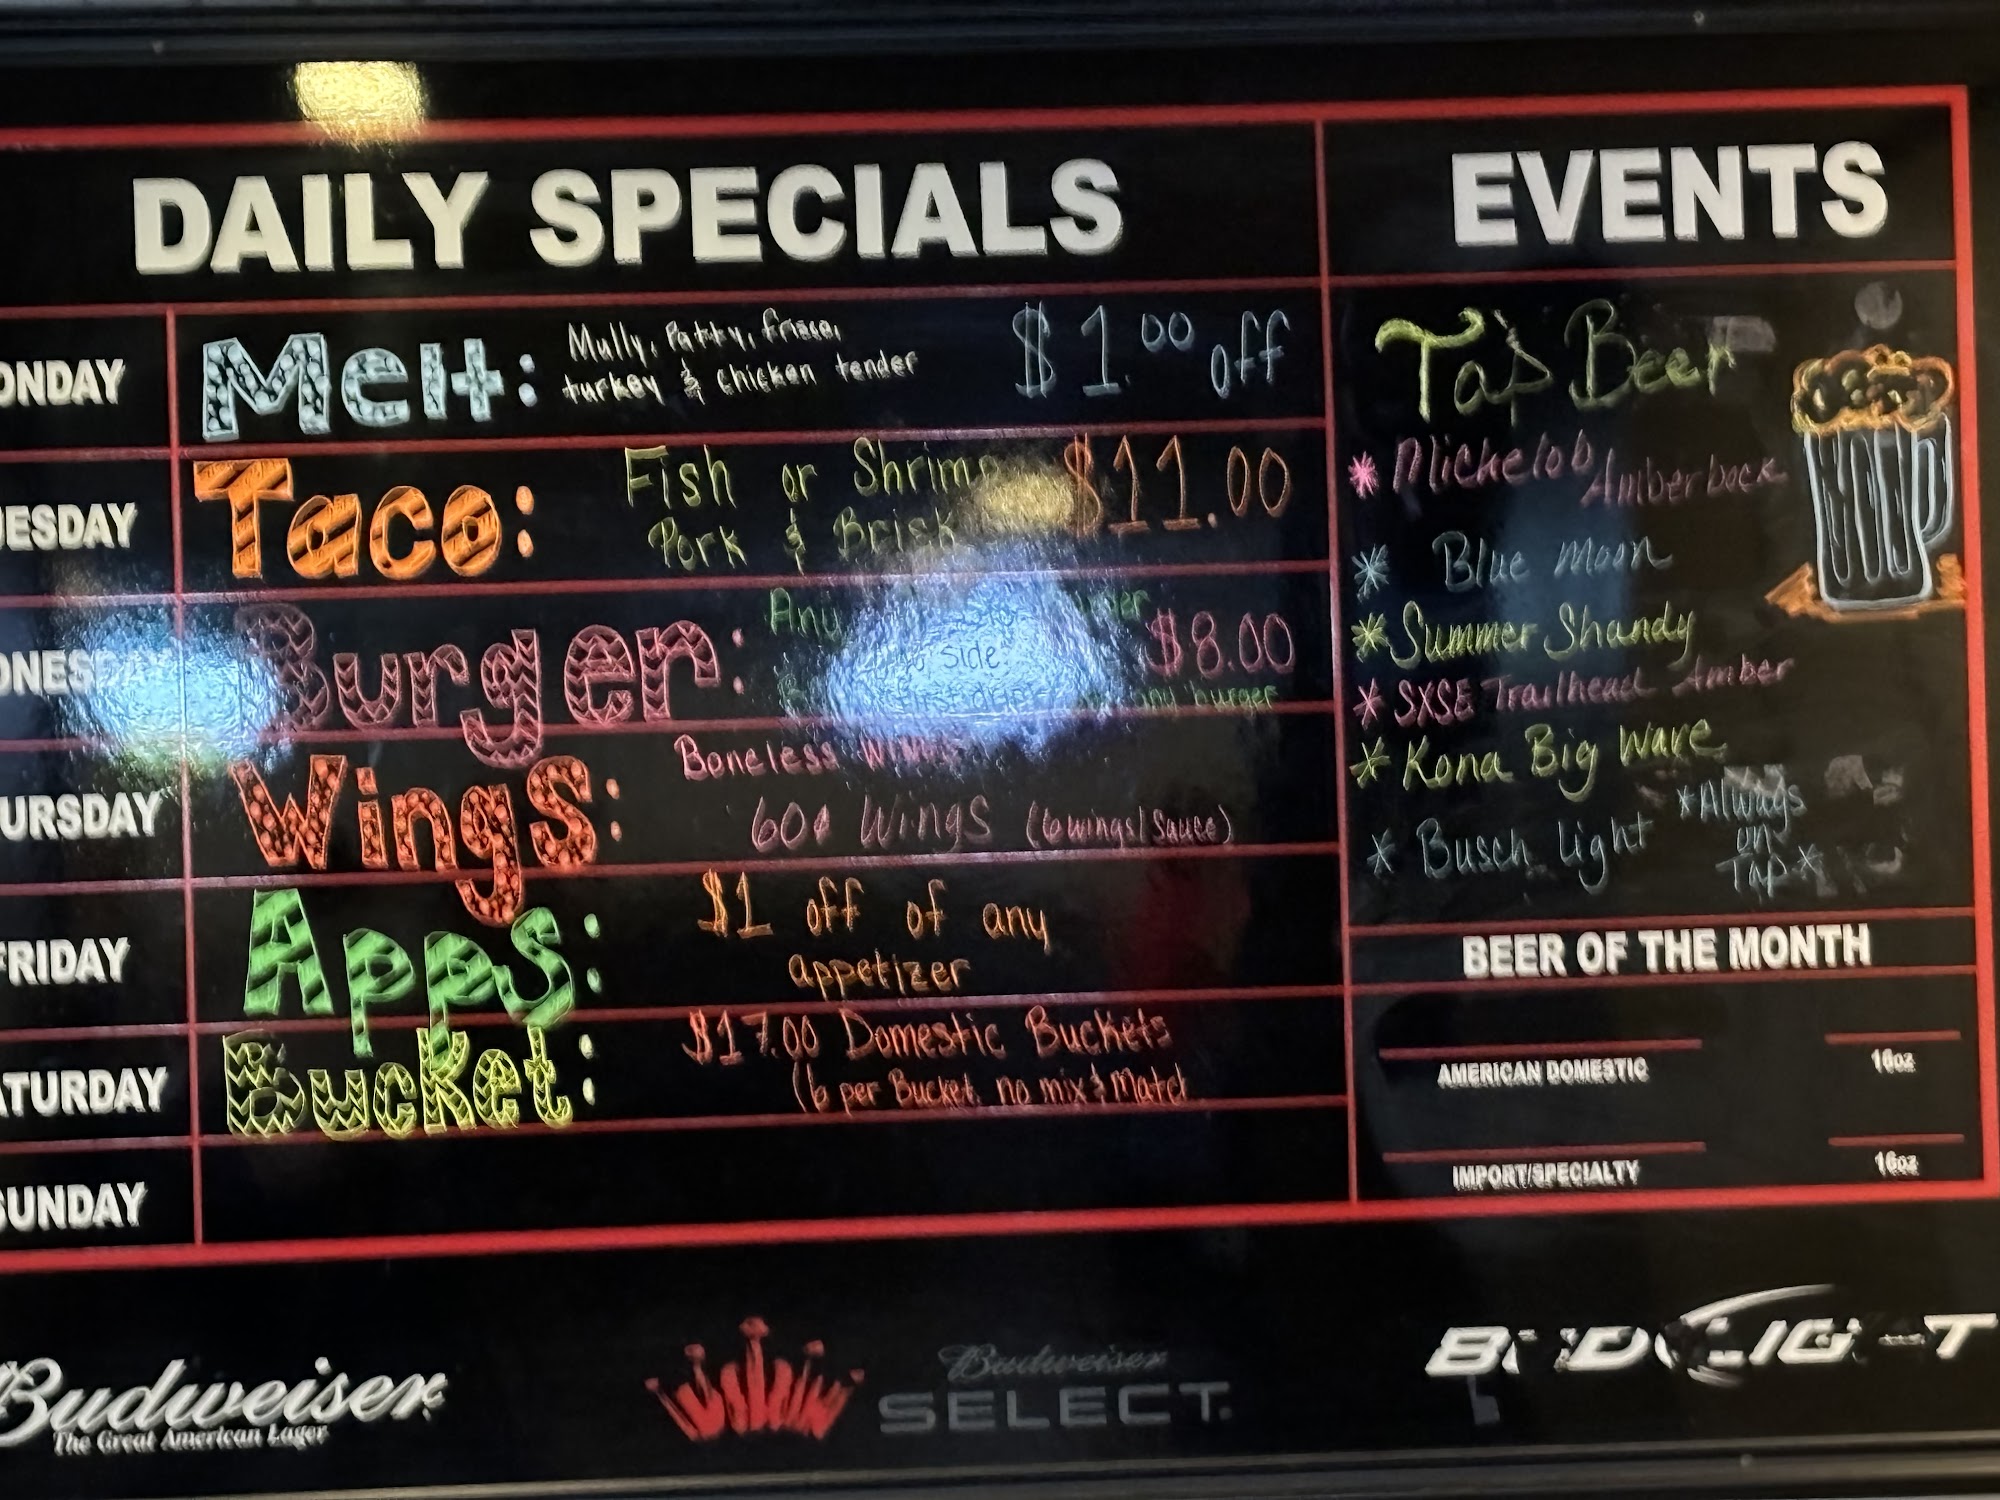 DAILY SPECIALS
ONDAY
Melt:
Mully, Patty, frisco,
turkey & chicken tender
$1.00 off
UESDAY
Taco:
Fish or Shrimp
Pork & Brisk
$11.00
DNESDAY
Burger:
Any
side
first any burger
$8.00
URSDAY
Wings:
Boneless Wings
60¢ Wings (6 wings/Sauce)
FRIDAY
Apps:
$1 off of any
appetizer
ATURDAY
Bucket:
$17.00 Domestic Buckets
(6 per Bucket, no mix & Match
SUNDAY
EVENTS
Tap Beer
* Michelob Amberbock
* Blue Moon
* Summer Shandy
* SXSE Trailhead Amber
* Kona Big Wave
* Busch light
*Always
on
Tap*
BEER OF THE MONTH
AMERICAN DOMESTIC 16oz
IMPORT/SPECIALTY 16oz
Budweiser
The Great American Lager
Budweiser
SELECT.
BUD LIGHT